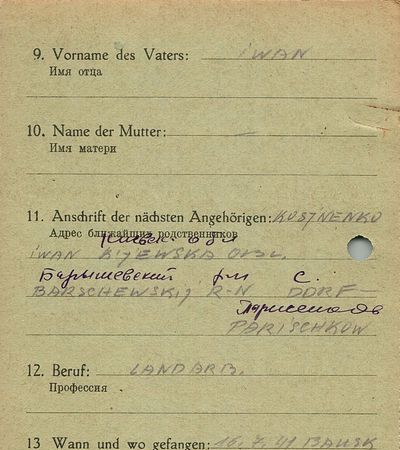 9. Vorname des Vaters: iWAN
Имя отца
10. Name der Mutter: —
Имя матери
11. Anschrift der nächsten Angehörigen: KUSTNENKO
Адрес ближайших родственников
Киевск. обл
iWAN KIJEWSKA OBL.
Барышевский р-н с.
BARSCHEWSKIJ R-N DORF—
PARISCHKOW
12. Beruf: LANDARB.
Профессия
13 Wann und wo gefangen: 16.7.41 BAUSK